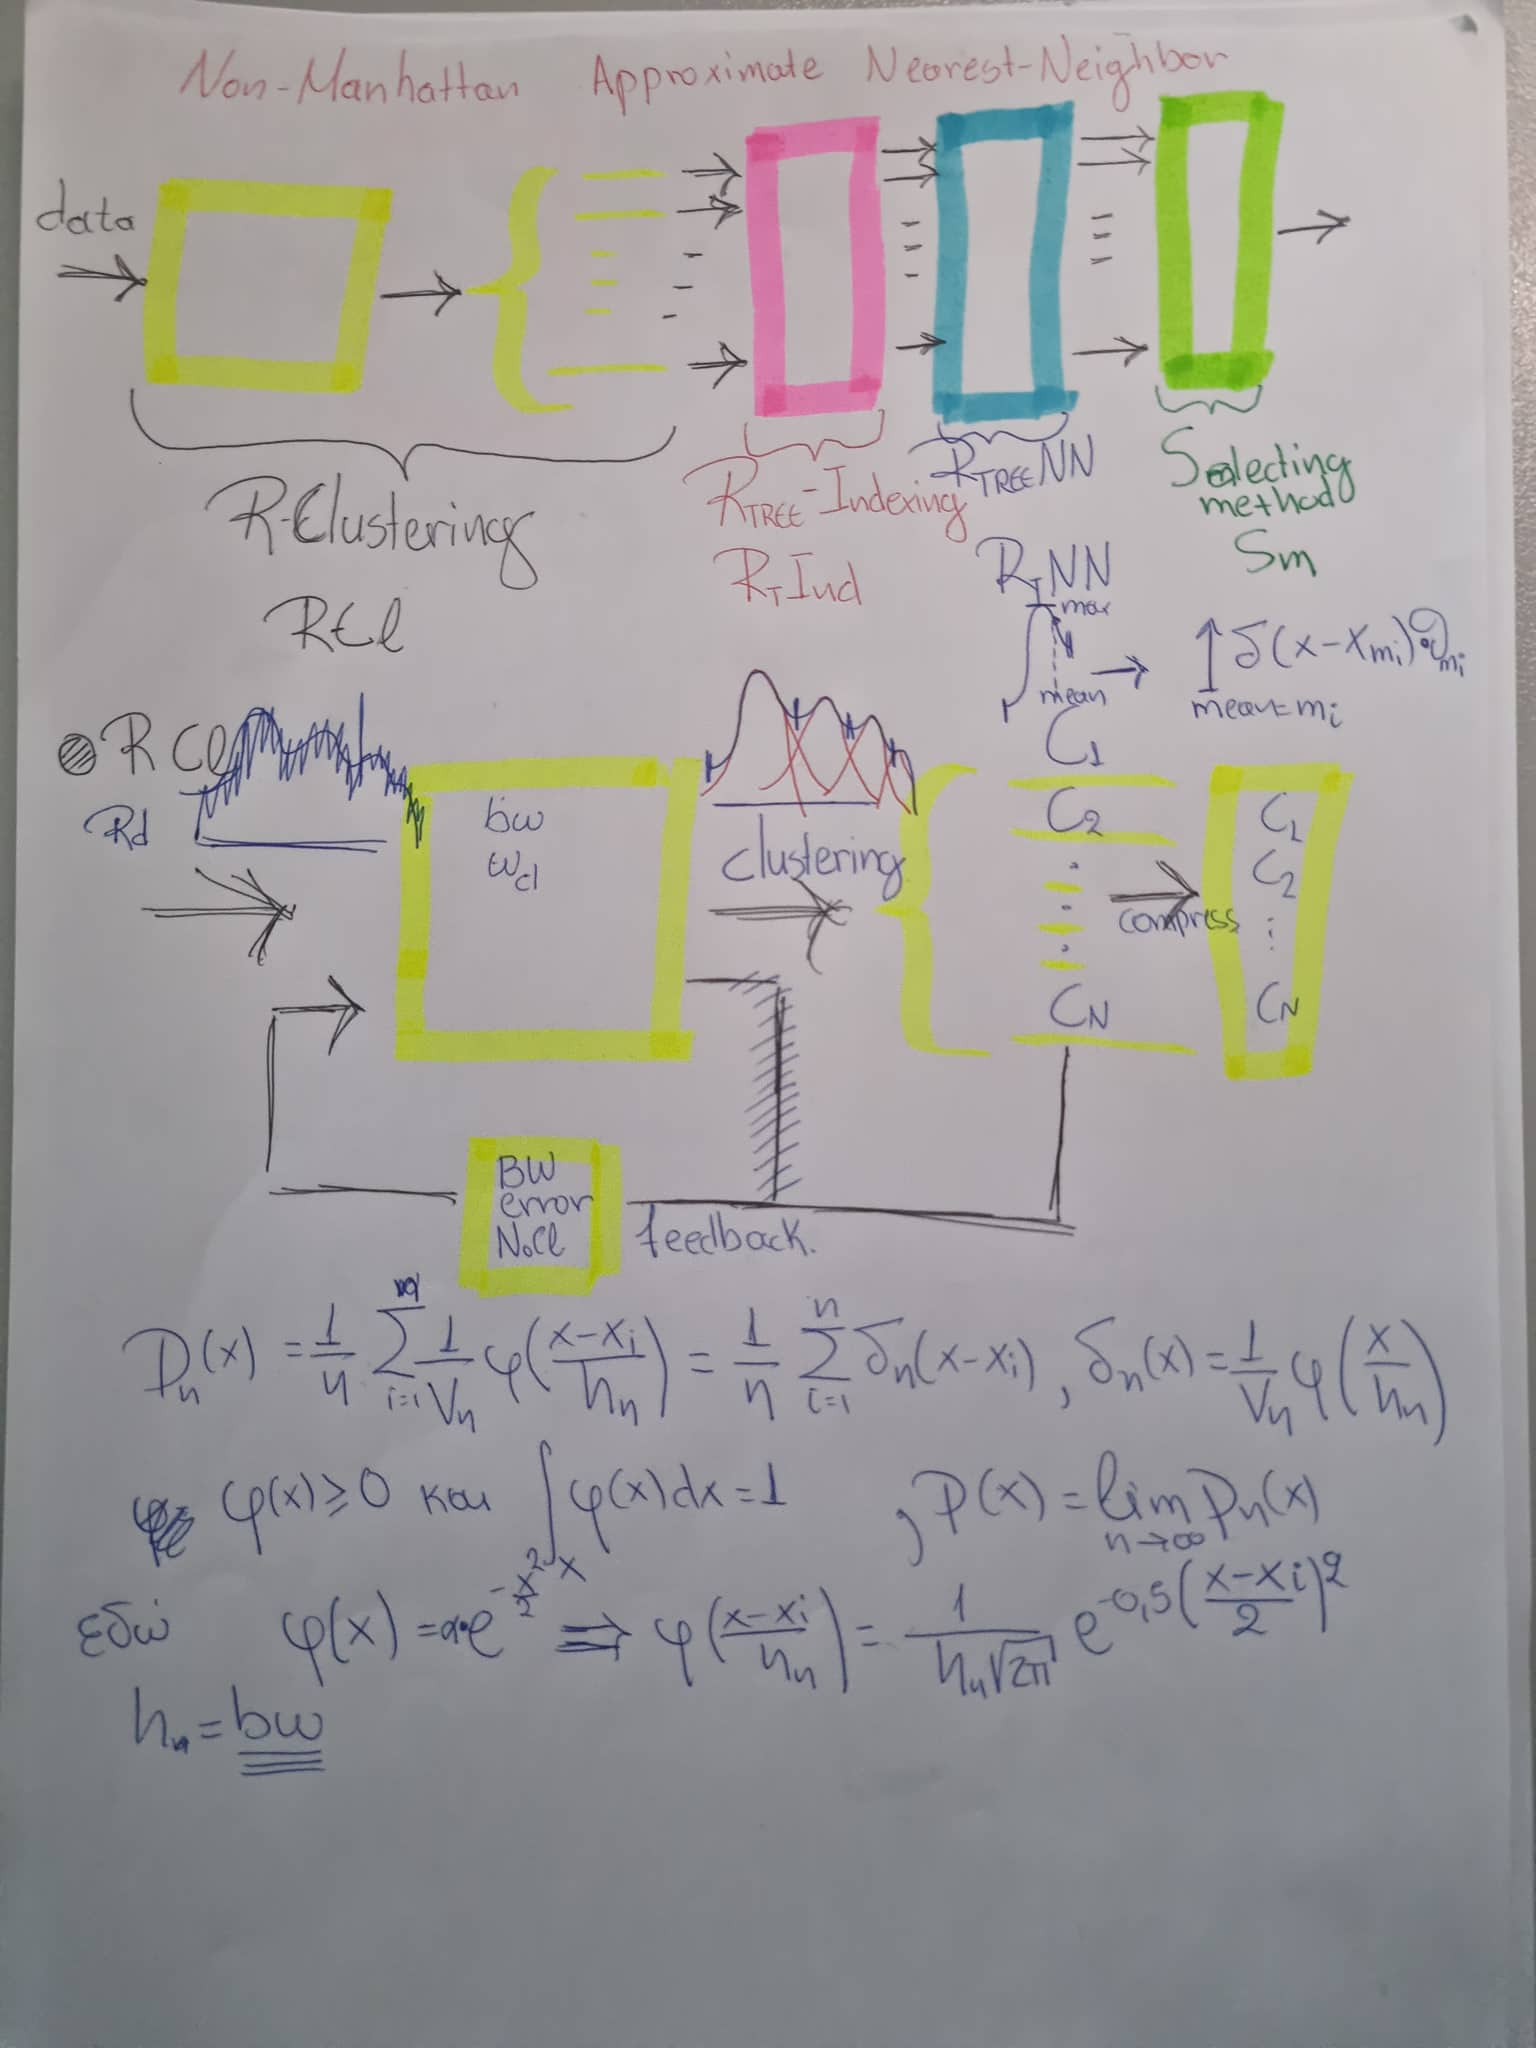 Non-Manhattan Approximate Nearest-Neighbor
data
R-Clustering
RCl
RTREE-Indexing
RTInd
RTREENN
RTNN
Selecting
method
Sm
max
mean
δ(x-xmi)
mean=mi
RCl
Rd
bw
wcl
clustering
C1
C2
CN
compress
C1
C2
⋮
CN
BW
error
NoCl
feedback.
Pn(x) = 1/n Σ i=1 1/Vn φ((x-xi)/hn) = 1/n Σ i=1 n δn(x-xi), δn(x) = 1/Vn φ(x/hn)
φ(x) ≥ 0 και ∫x φ(x)dx=1 , P(x) = lim n→∞ Pn(x)
εδώ φ(x) = α·e^(-x²/2) ⇒ φ((x-xi)/hn) = 1/(hn√2π) e^(-0,5((x-xi)/2)²)
hn = bw